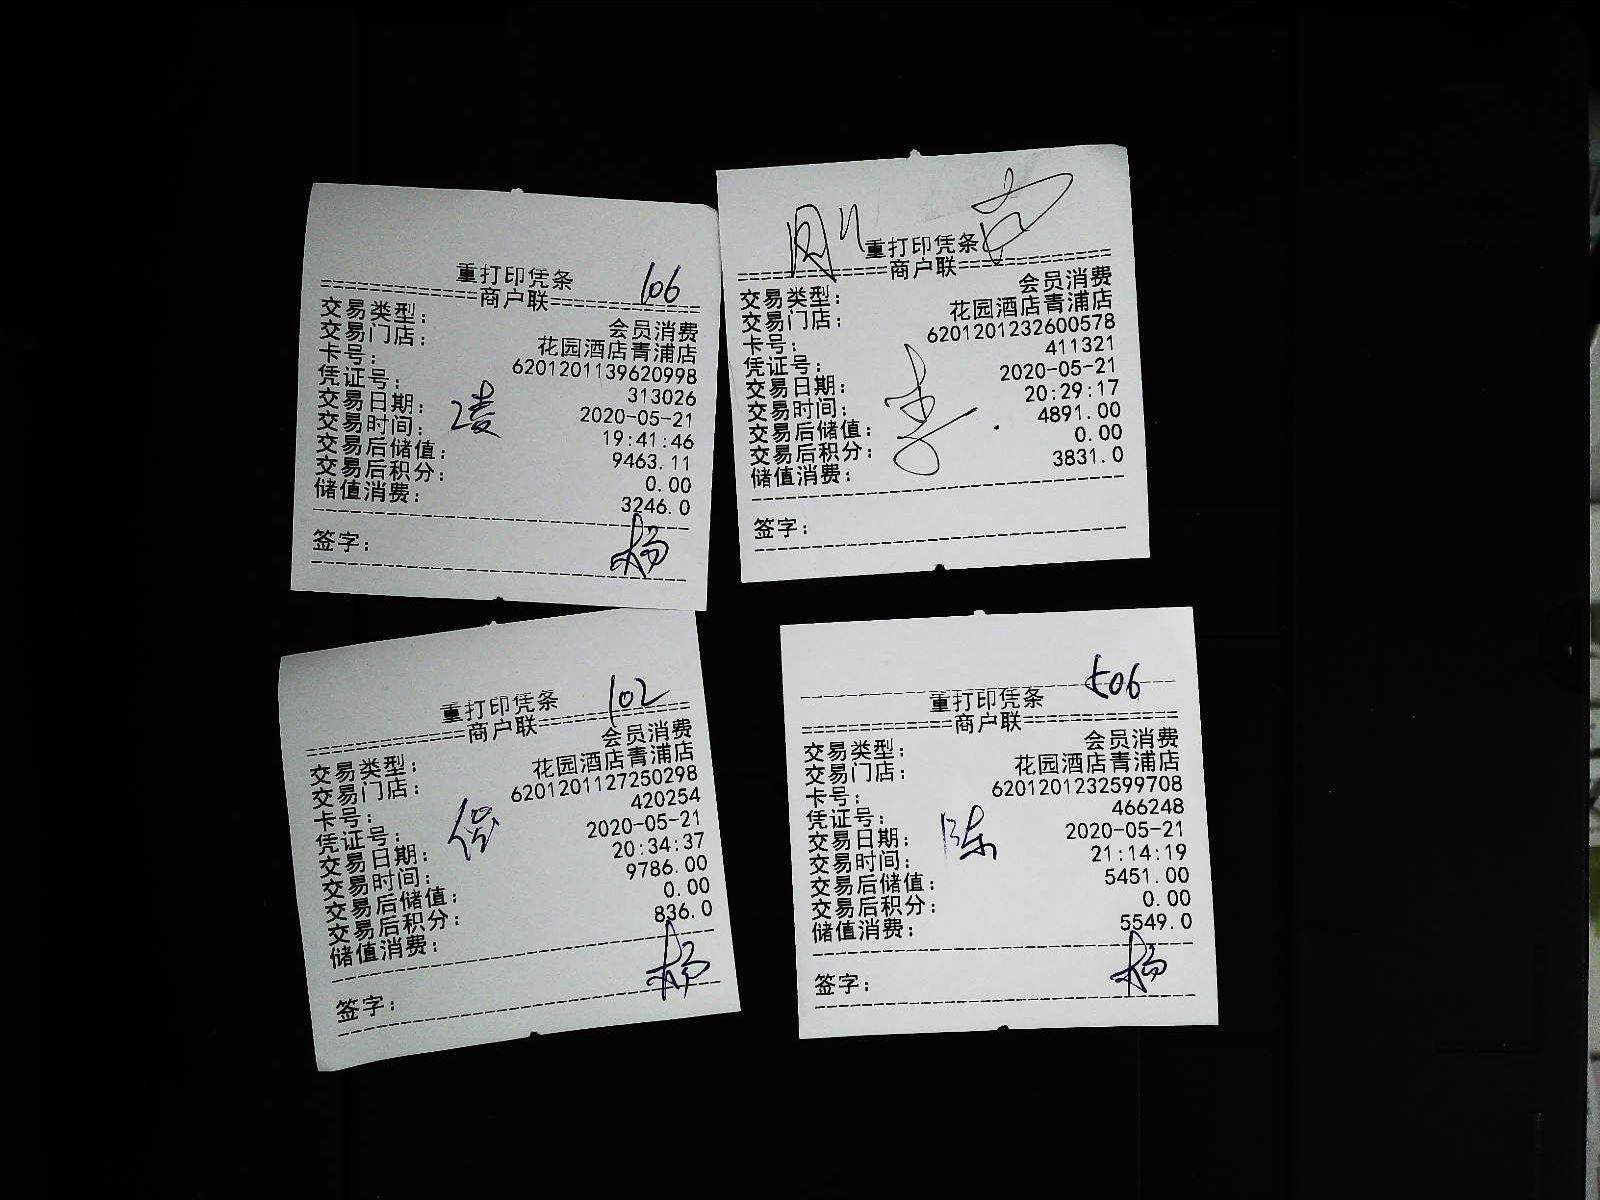 重打印凭条
106
================商户联================
交易类型：
会员消费
交易门店：
花园酒店青浦店
卡号：
6201201139620998
凭证号：
313026
交易日期：
2020-05-21
交易时间：
19:41:46
交易后储值：
9463.11
交易后积分：
0.00
储值消费：
3246.0
凌
签字：
杨
重打印凭条
================商户联================
交易类型：
会员消费
交易门店：
花园酒店青浦店
卡号：
6201201232600578
凭证号：
411321
交易日期：
2020-05-21
交易时间：
20:29:17
交易后储值：
4891.00
交易后积分：
0.00
储值消费：
3831.0
李
签字：
重打印凭条
102
================商户联================
交易类型：
会员消费
交易门店：
花园酒店青浦店
卡号：
6201201127250298
凭证号：
420254
交易日期：
2020-05-21
交易时间：
20:34:37
交易后储值：
9786.00
交易后积分：
0.00
储值消费：
836.0
签字：
杨
重打印凭条
506
================商户联================
交易类型：
会员消费
交易门店：
花园酒店青浦店
卡号：
6201201232599708
凭证号：
466248
交易日期：
2020-05-21
交易时间：
21:14:19
交易后储值：
5451.00
交易后积分：
0.00
储值消费：
5549.0
陈
签字：
杨